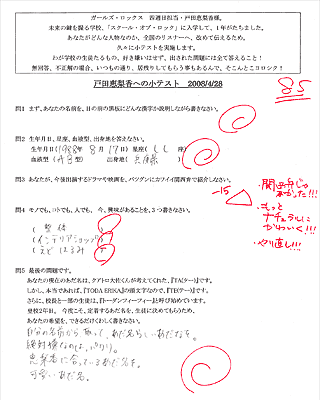 ガールズ・ロックス 四週目担当・戸田恵梨香様。
未来の鍵を握る学校、「スクール・オブ・ロック」に入学して、1年がたちました。
あなたがどんな人物なのか、全国のリスナーへ、改めて伝えるため。
久々に小テストを実施します。
わが学校の生徒たるもの、好き嫌いはせず、出された問題には全て答えること！
無回答、不正解の場合、いつもの通り、居残りしてもらう事もあるんで、そこんとこヨロシク！
85
戸田恵梨香への小テスト 2008/4/28
問1 まず、あなたの名前を、目の前の黒板にどんな漢字か説明しながら書きなさい。
問2 生年月日、星座、血液型、出身地を答えなさい。
生年月日（1988年 8月 17日 星座（しし 座）
血液型（AB型） 出身地（兵庫県）
問3 あなたが、今後出演するドラマや映画を、バツグンにカワイイ関西弁で紹介しなさい。
-15
もっと
ナチュラルに
かわいく!!!
やり直し!!!
問4 モノでも、コトでも、人でも、今、興味があることを、3つ書きなさい。
（整体）
（インテリアショップ）
問5 最後の問題です。
あなたの現在のあだ名は、クアトロ大佐くんが考えてくれた、『TAE（ター）』です。
しかし、本当であれば、『TODA ERIKA』の頭文字なので、『TE（テー）』です。
さらに、校長と一部の生徒は、『トーダンフィーフィー』と呼び始めています。
登校2年目。今度こそ、定着するあだ名を、生徒に決めてもらうため、
あなたの希望を、できるだけくわしく書きなさい。
自分の名前から取って、あだ名らしいあだ名を。
恵梨香に合っているあだ名を。
可愛いあだ名。